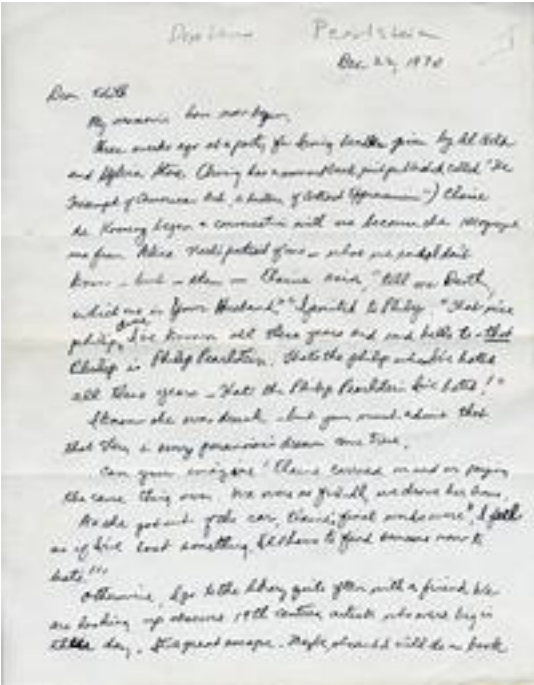 Pearlstein
Dec 22, 1970
Dear Edith
My memoirs have now begun.
Three weeks ago at a party for Irving Sandler given by Al Held
and Sylvia Stone (Irving has a new book just published called "The
Triumph of American Art, a history of Abstract Expressionism") Elaine
de Kooning began a conversation with me because she recognized
me from Alice Neel's portrait of me - what one
know - but - then - Elaine said, "tell me Dorothy,
which one is your Husband." I pointed to Philip. "That nice
philip, I've known all these years and said hello to - that
Philip is Philip Pearlstein. That's the philip I've hated
all these years - that's the Philip Pearlstein I've hated!"
I know she was drunk - but you must admit that
that story is every paranoic's dream come true.
Can you imagine! Elaine carried on and on saying
the same thing over. We were so friendly, we drove her home.
As she got out of the car, Elaine's final words were, "I feel
as if I've lost something. I'll have to find someone new to
hate!"
Otherwise, I go to the library quite often with a friend. We
are looking up obscure 19th century artists who were big in
day. It's a great escape. Maybe, she and I will do a book